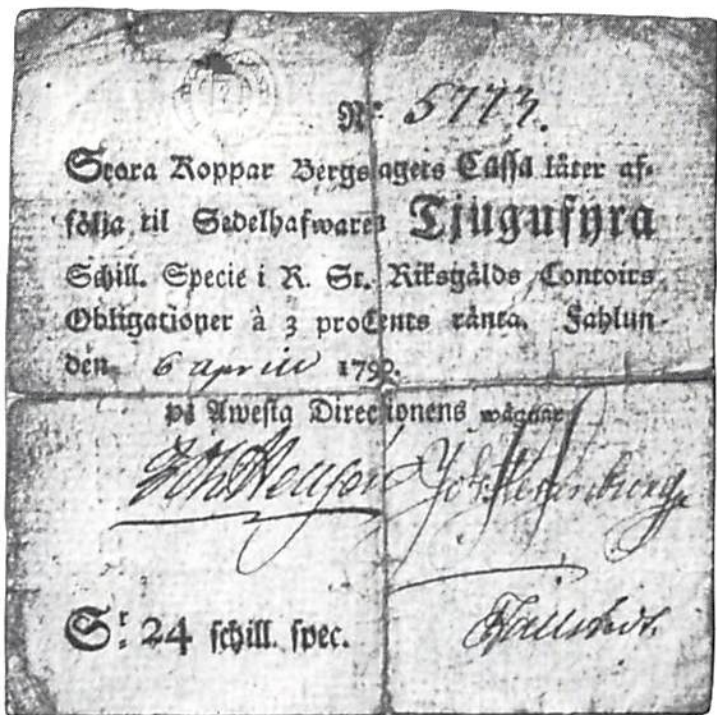 N:º 5773.
Stora Koppar Bergslagets Cassa låter af-
följa til Sedelhafwaren Tjugufyra
Schill. Specie i R. St. Riksgälds Contoirs
Obligationer à 3 proCents ränta. Fahlun
den 6 april 1790.
på Awesta Directionens wägnar
S:r 24 schill. spec.